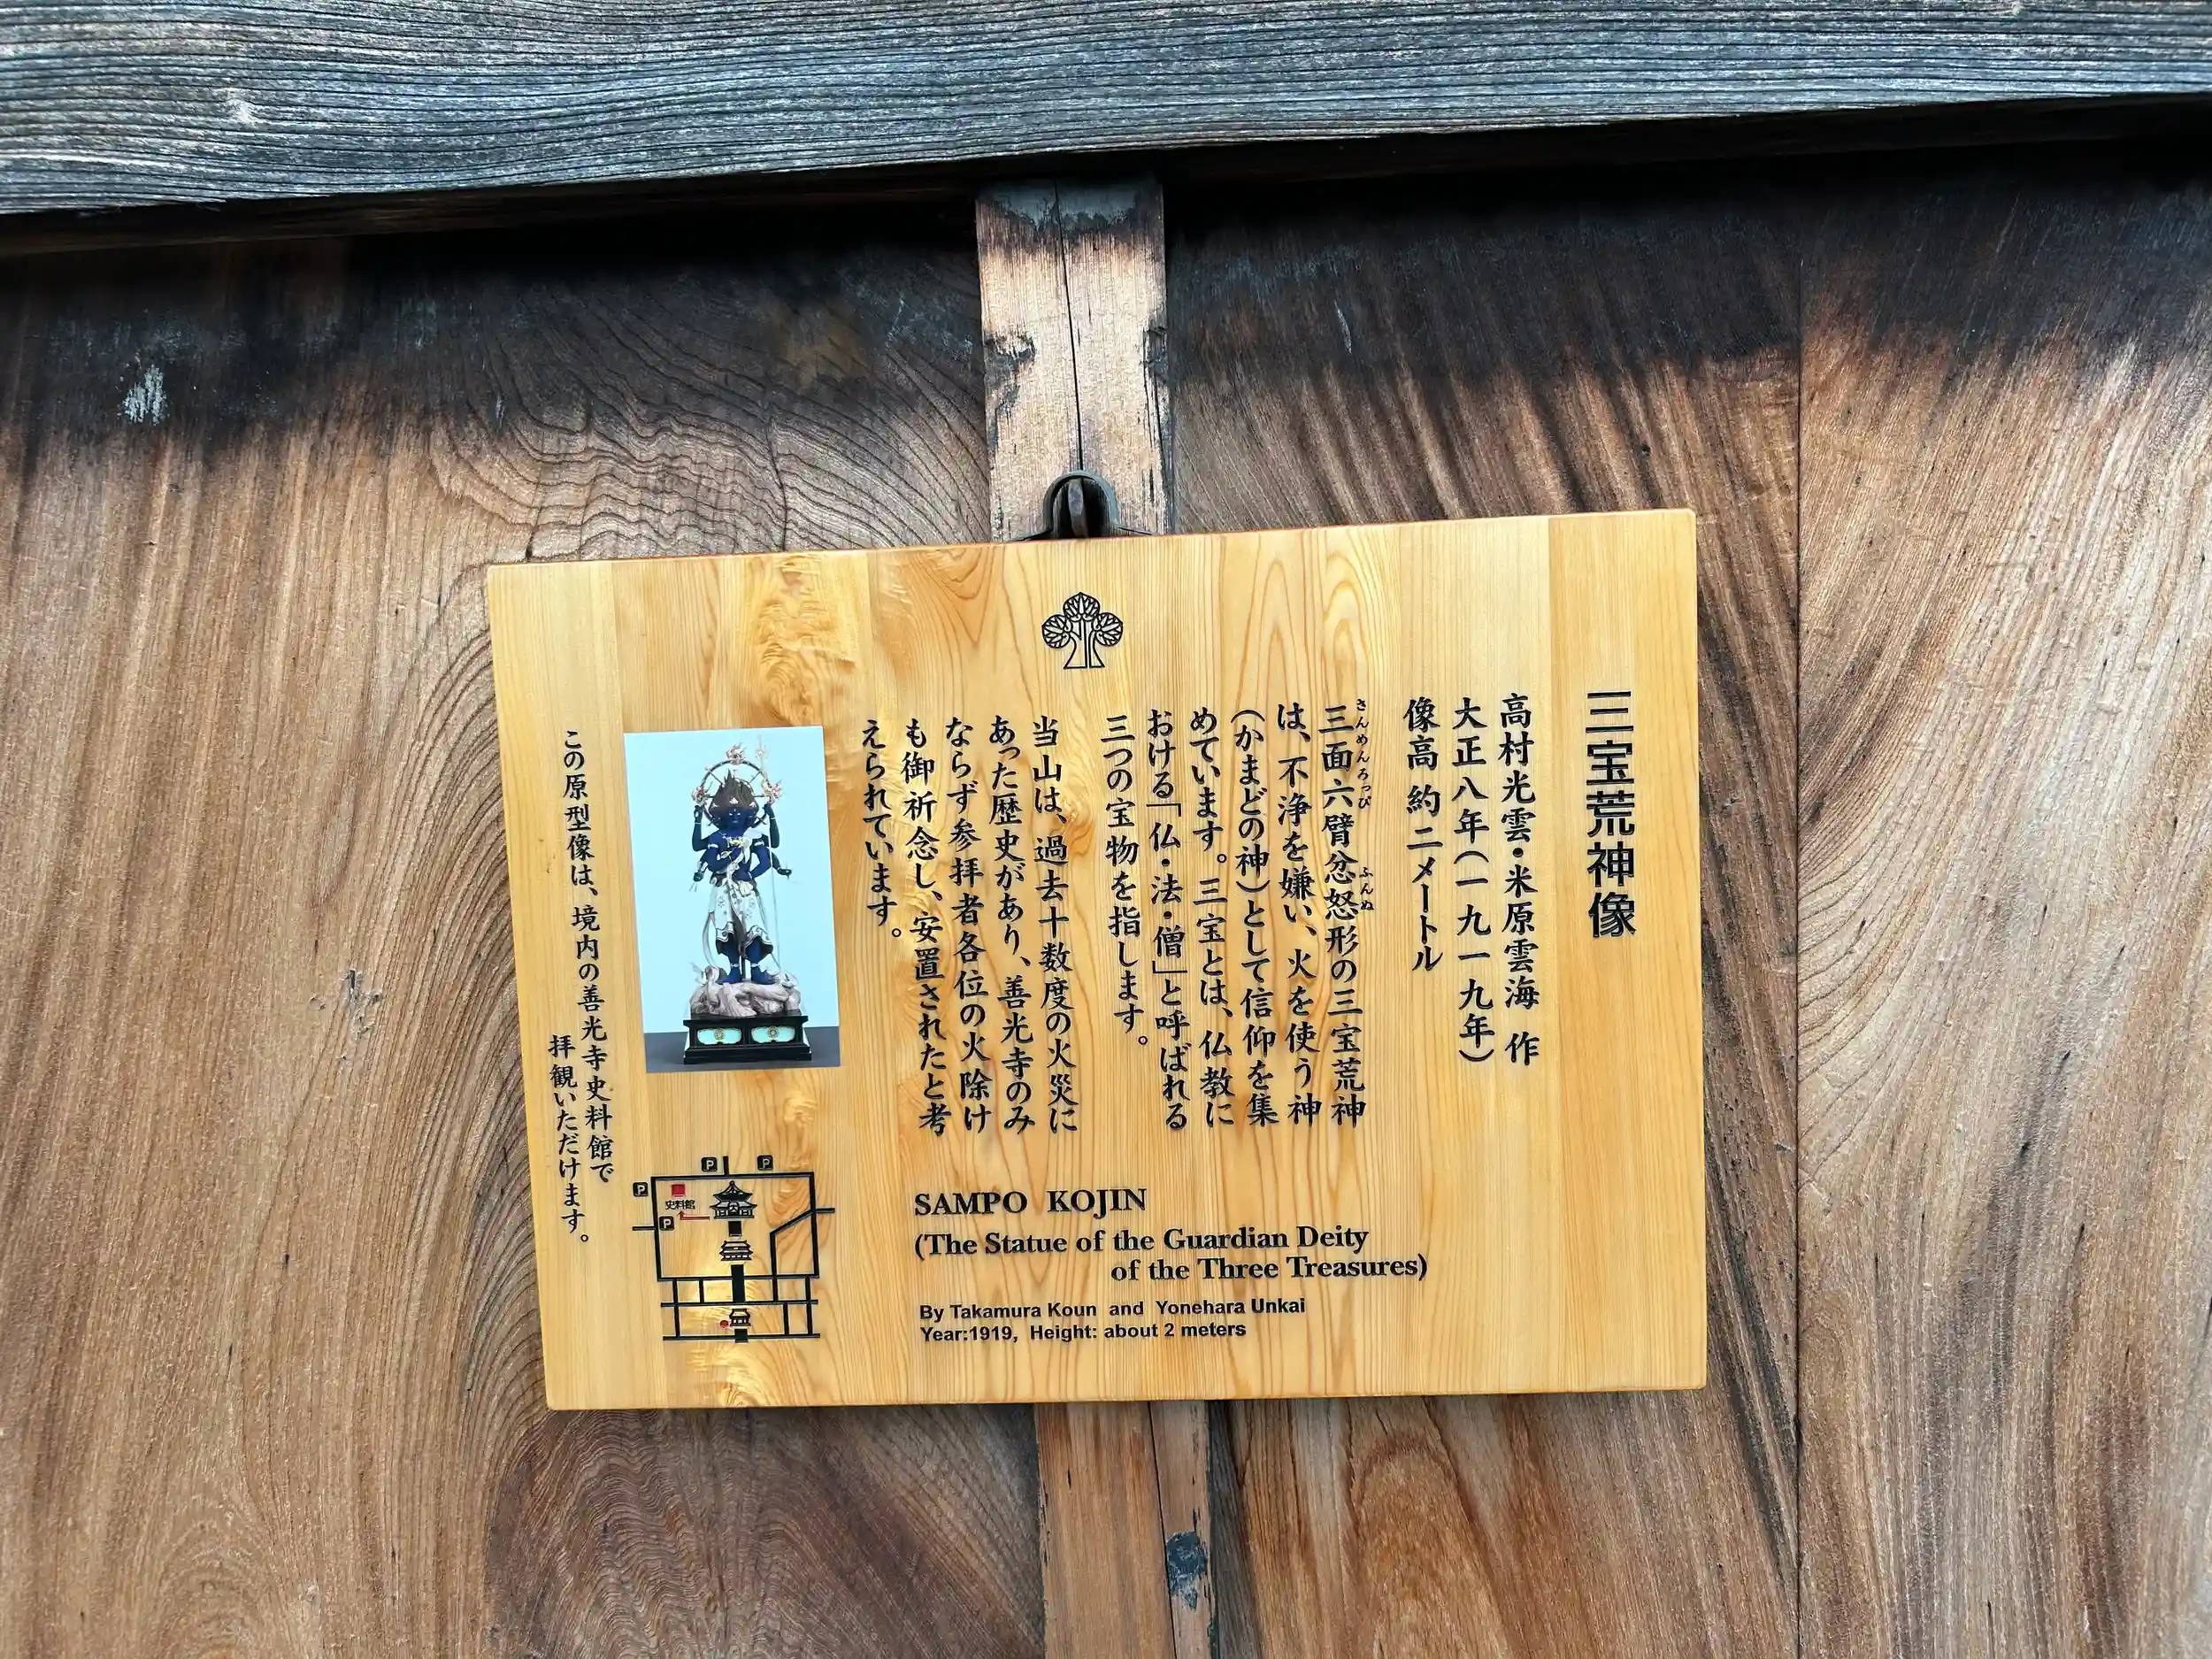 三宝荒神像
高村光雲・米原雲海 作
大正八年(一九一九年)
像高 約二メートル
さんめんろっぴ
ふんぬ
三面六臂忿怒形の三宝荒神
は、不浄を嫌い、火を使う神
(かまどの神)として信仰を集
めています。三宝とは、仏教に
おける「仏・法・僧」と呼ばれる
三つの宝物を指します。
当山は、過去十数度の火災に
あった歴史があり、善光寺のみ
ならず参拝者各位の火除け
も御祈念し、安置されたと考
えられています。
この原型像は、境内の善光寺史料館で
拝観いただけます。
P
P
P
史料館
P
SAMPO KOJIN
(The Statue of the Guardian Deity
of the Three Treasures)
By Takamura Koun and Yonehara Unkai
Year:1919, Height: about 2 meters